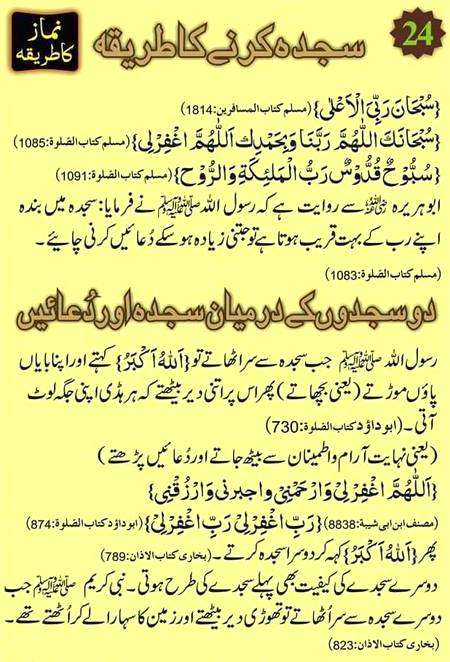 24
سجدہ کرنے کا طریقہ
نماز
کا طریقہ
{سُبْحَانَ رَبِّیَ الْاَعْلٰی} (مسلم کتاب المسافرین:1814)
{سُبْحَانَکَ اللّٰھُمَّ رَبَّنَا وَبِحَمْدِکَ اَللّٰھُمَّ اغْفِرْلِی} (مسلم کتاب الصلوۃ:1085)
{سُبُّوْحٌ قُدُّوْسٌ رَبُّ الْمَلٰئِکَةِ وَالرُّوْحِ} (مسلم کتاب الصلوۃ:1091)
ابوہریرہ رضی اللہ عنہ سے روایت ہے کہ رسول اللہ ﷺ نے فرمایا: سجدہ میں بندہ
اپنے رب کے بہت قریب ہوتا ہے تو جتنی زیادہ ہو سکے دُعائیں کرنی چاہیئے۔
(مسلم کتاب الصلوۃ:1083)
دو سجدوں کے درمیان سجدہ اور دُعائیں
رسول اللہ ﷺ جب سجدہ سے سر اٹھاتے تو {اَللّٰهُ اَکْبَرُ} کہتے اور اپنا بایاں
پاؤں موڑتے (یعنی بچھاتے) پھر اس پر اتنی دیر بیٹھتے کہ ہر ہڈی اپنی جگہ لوٹ
آتی۔ (ابوداؤد کتاب الصلوۃ:730)
(یعنی نہایت آرام و اطمینان سے بیٹھ جاتے اور دُعائیں پڑھتے)
{اَللّٰھُمَّ اغْفِرْلِیْ وَارْحَمْنِیْ واجبرنی وَارْزُقْنِیْ}
(مصنف ابن ابی شیبة:8838) {رَبِّ اغْفِرْلِیْ رَبِّ اغْفِرْلِیْ} (ابوداؤد کتاب الصلوۃ:874)
پھر {اَللّٰهُ اَکْبَرُ} کہہ کر دوسرا سجدہ کرتے۔ (بخاری کتاب الاذان:789)
دوسرے سجدے کی کیفیت بھی پہلے سجدے کی طرح ہوتی۔ نبی کریم ﷺ جب
دوسرے سجدہ سے سر اُٹھاتے تو تھوڑی دیر بیٹھتے اور زمین کا سہارا لے کر اُٹھتے تھے۔
(بخاری کتاب الاذان:823)